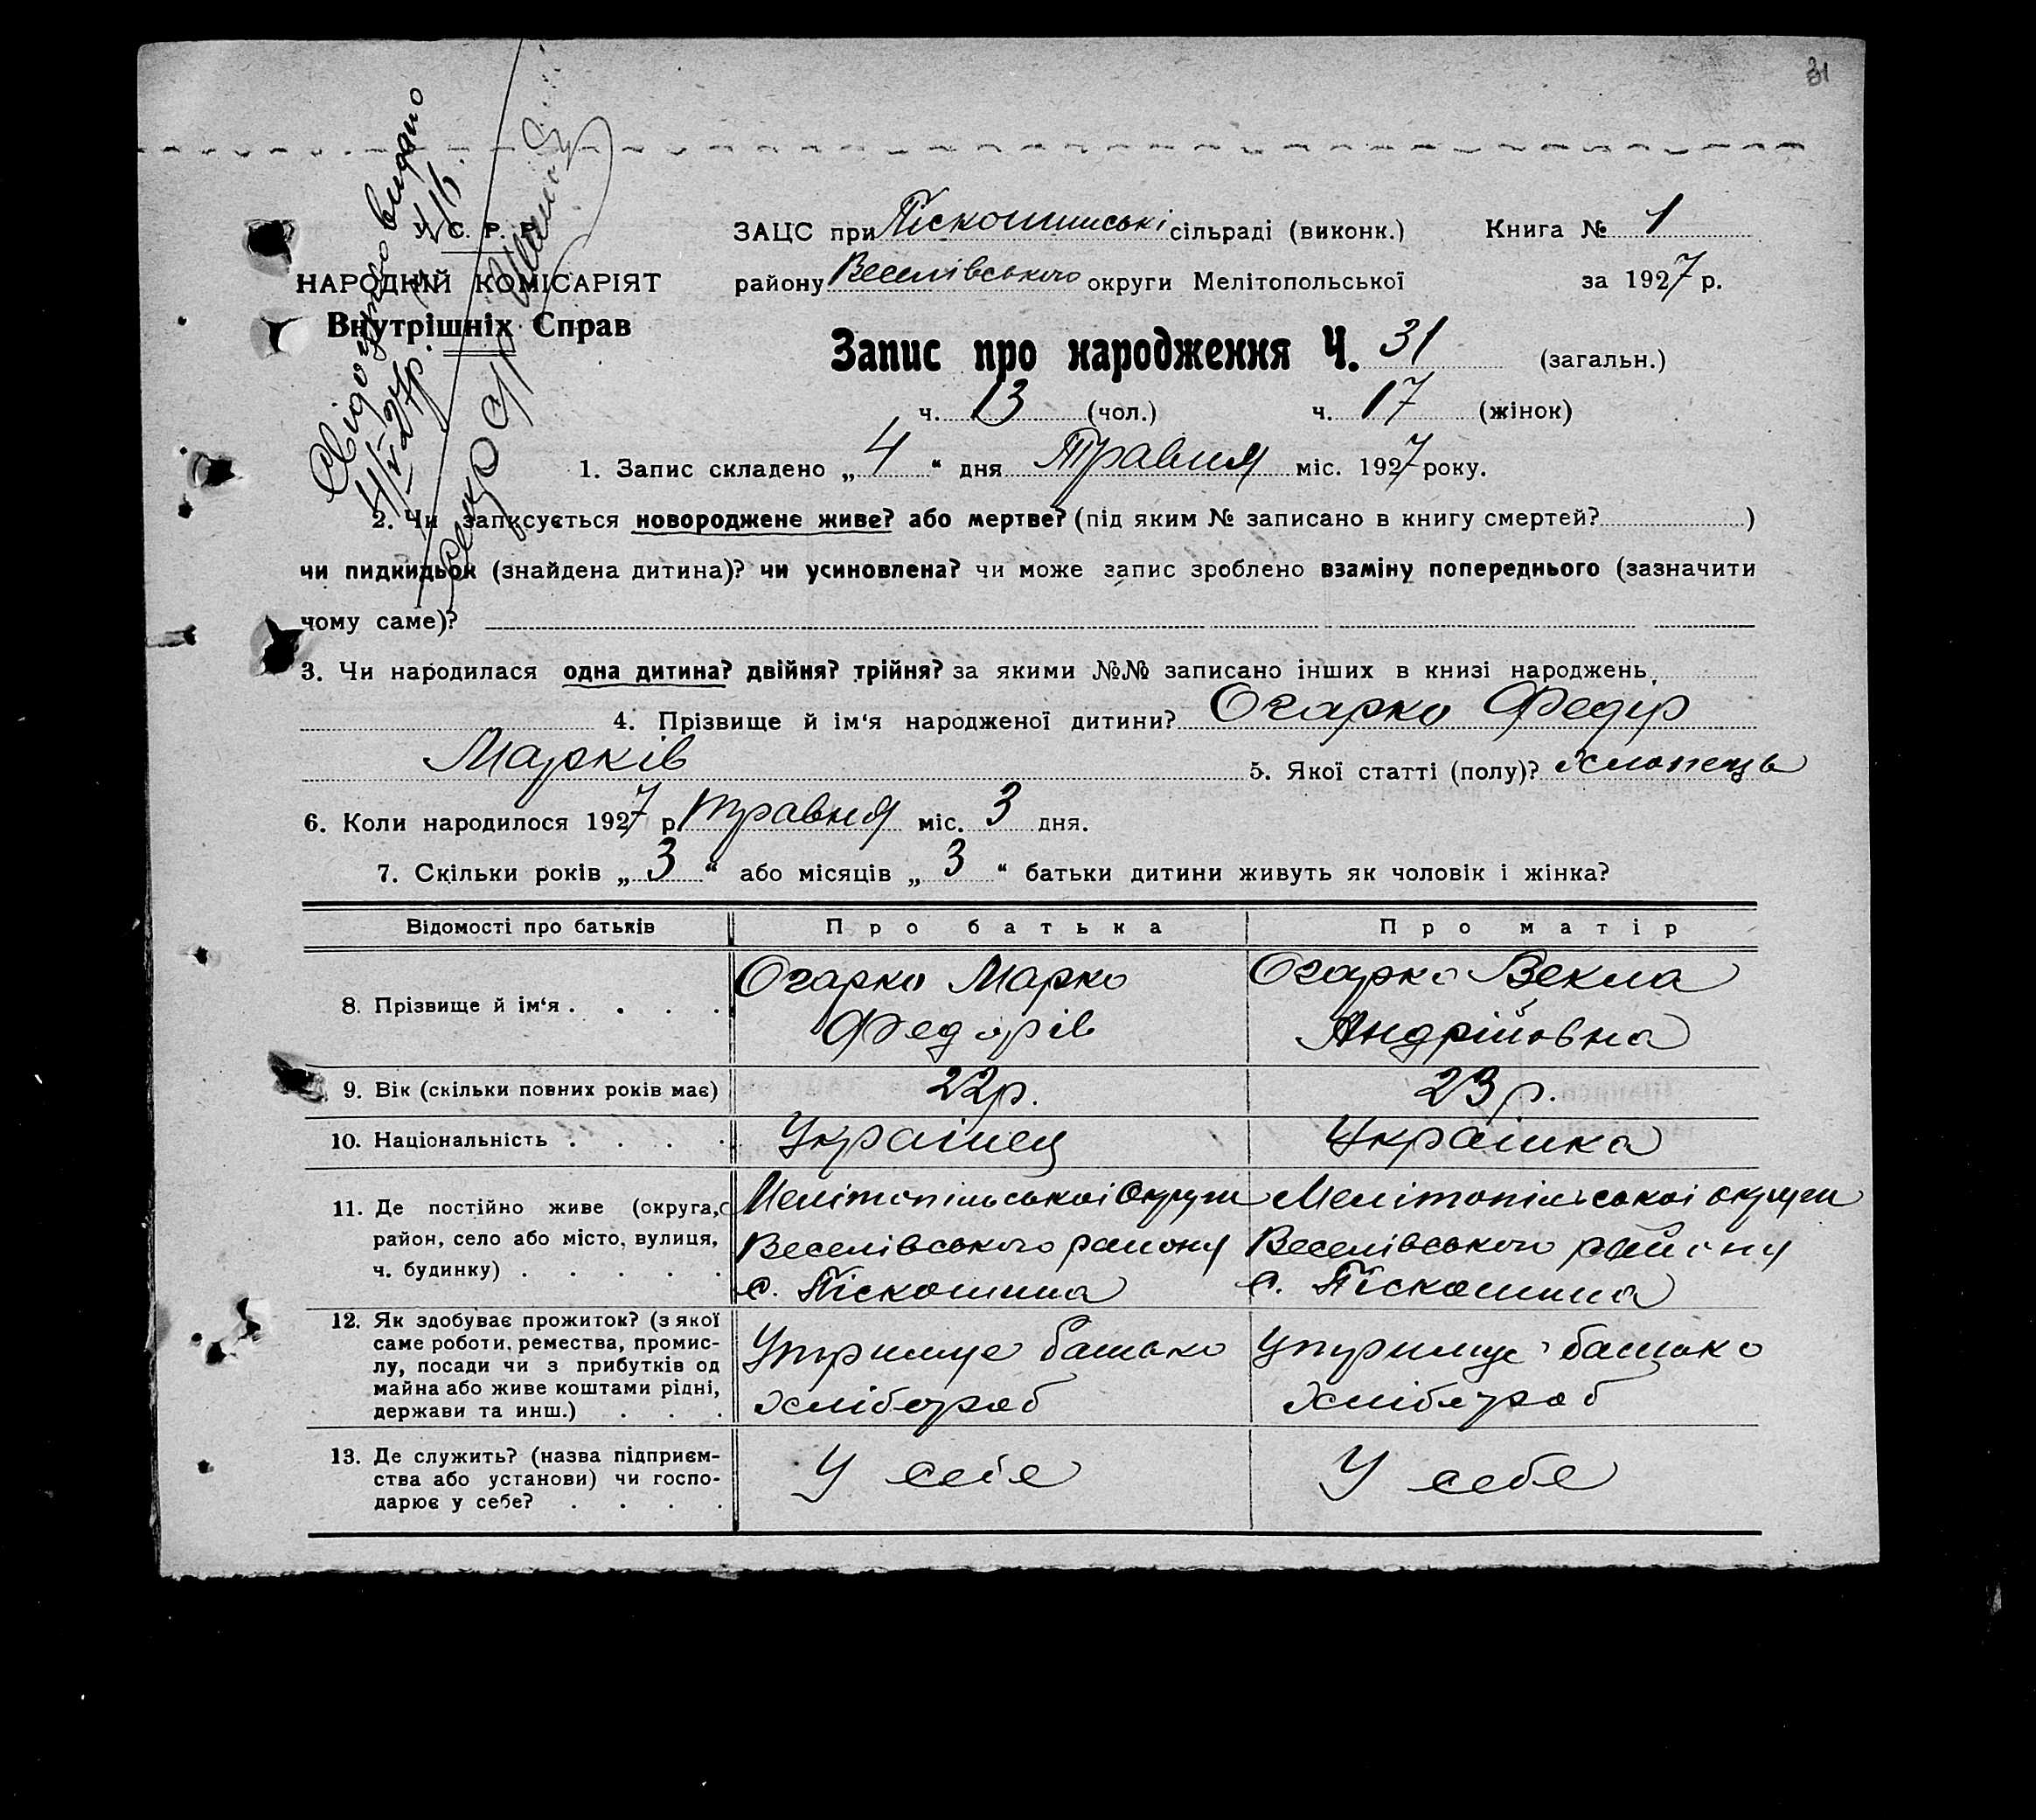 31
Свідоцтво видано
4/V-27р.
У. С. Р. Р.
НАРОДНІЙ КОМІСАРІЯТ
Внутрішніх Справ
ЗАЦС при Піскошинські сільраді (виконк.)
Книга № 1
району Веселівського округи Мелітопольської
за 1927 р.
Запис про народження Ч. 31 (загальн.)
ч. 13 (чол.) ч. 17 (жінок)
1. Запис складено „ 4 “ дня Травня міс. 1927 року.
2. Чи записується новороджене живе? або мертве? (під яким № записано в книгу смертей? )
чи пидкидьок (знайдена дитина)? чи усиновлена? чи може запис зроблено взаміну попереднього (зазначити
чому саме)?
3. Чи народилася одна дитина? двійня? трійня? за якими №№ записано інших в книзі народжень.
4. Прізвище й ім‘я народженої дитини? Огарко Федір
Марків 5. Якої статті (полу)? Хлопець
6. Коли народилося 1927 р. травня міс. 3 дня.
7. Скільки років „ 3 “ або місяців „ 3 “ батьки дитини живуть як чоловік і жінка?
Відомості про батьків
Про батька
Про матір
8. Прізвище й ім‘я . . . .
Огарко Марко
Федорів
Огарко Векла
Андрійовна
9. Вік (скільки повних років має)
22р.
23р.
10. Національність . . . .
Українец
Українка
11. Де постійно живе (округа,
район, село або місто, вулиця,
ч. будинку) . . . . .
Мелітопільської Округи
Веселівського району
с. Піскошина
Мелітопільської округи
Веселівського району
с. Піскошина
12. Як здобуває прожиток? (з якої
саме роботи, ремества, промис-
лу, посади чи з прибутків од
майна або живе коштами рідні,
держави та инш.) . . .
Утримує батько
хлібороб
Утримує батько
хлібороб
13. Де служить? (назва підприєм-
ства або установи) чи госпо-
дарює у себе? . . . .
У себе
У себе